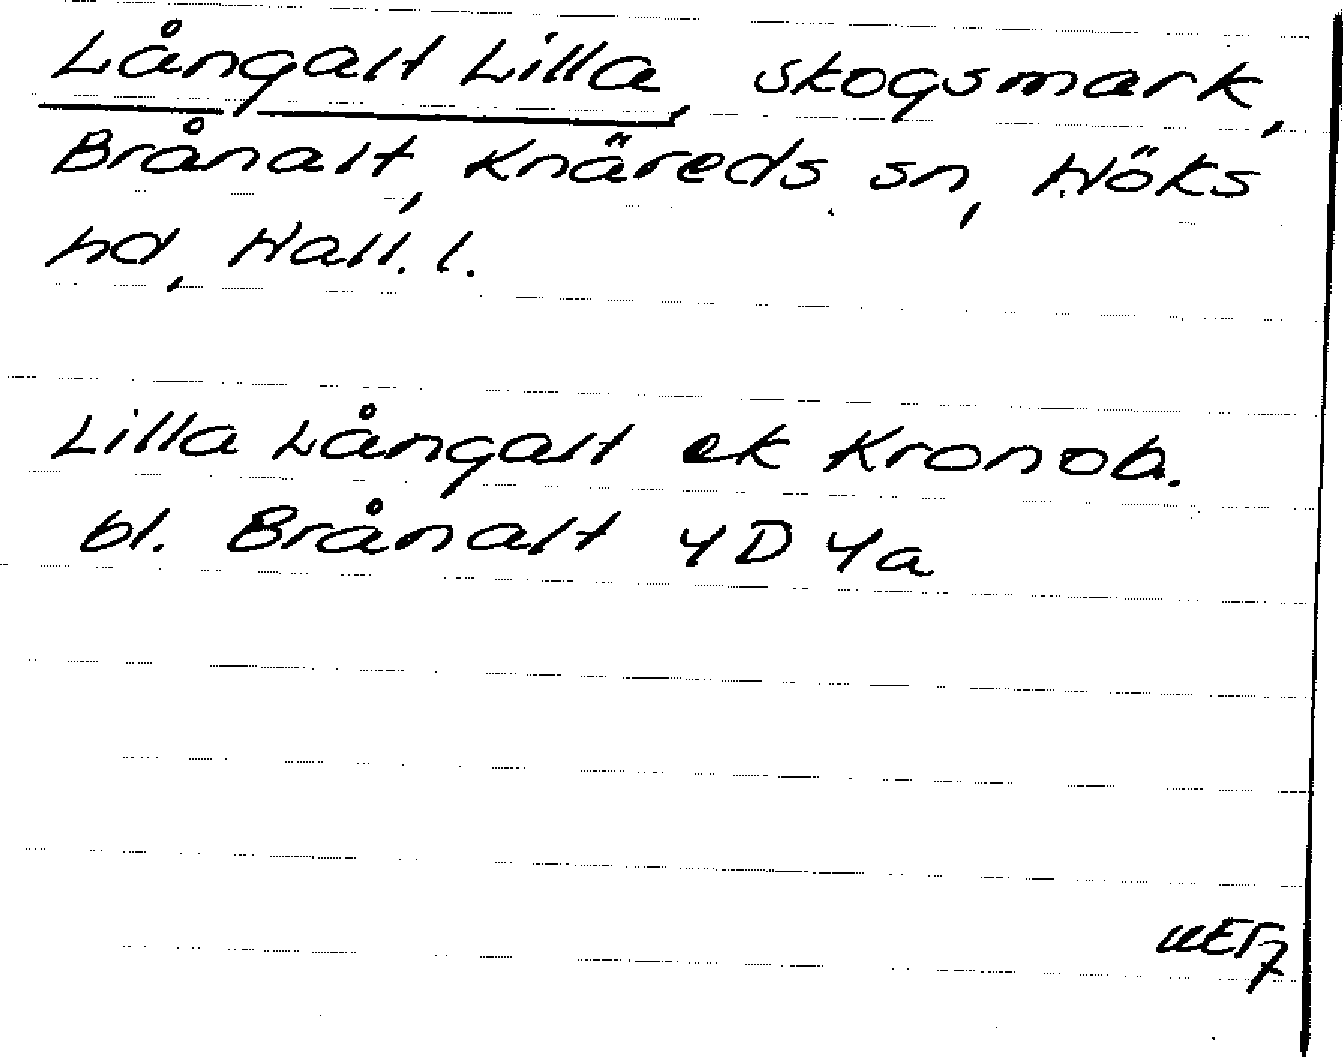 Långalt Lilla, skogsmark,
Brånalt, Knäreds sn, Höks
hd, Hall. l.
Lilla Långalt ek Kronob.
bl. Brånalt 4D 4a